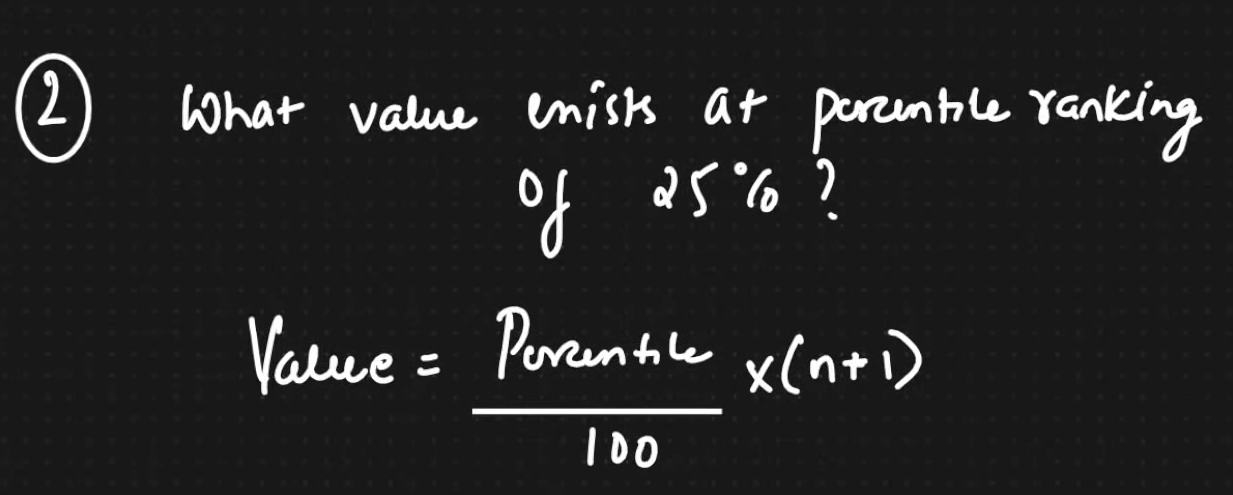 ② What value exists at percentile ranking
of 25% ?
Value = Percentile x(n+1)
100